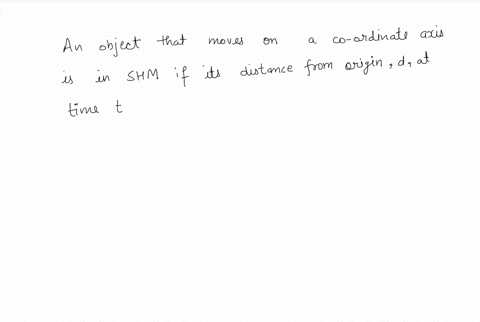 An object that moves on a co-ordinate axis
is in SHM if its distance from origin, d, at
time t